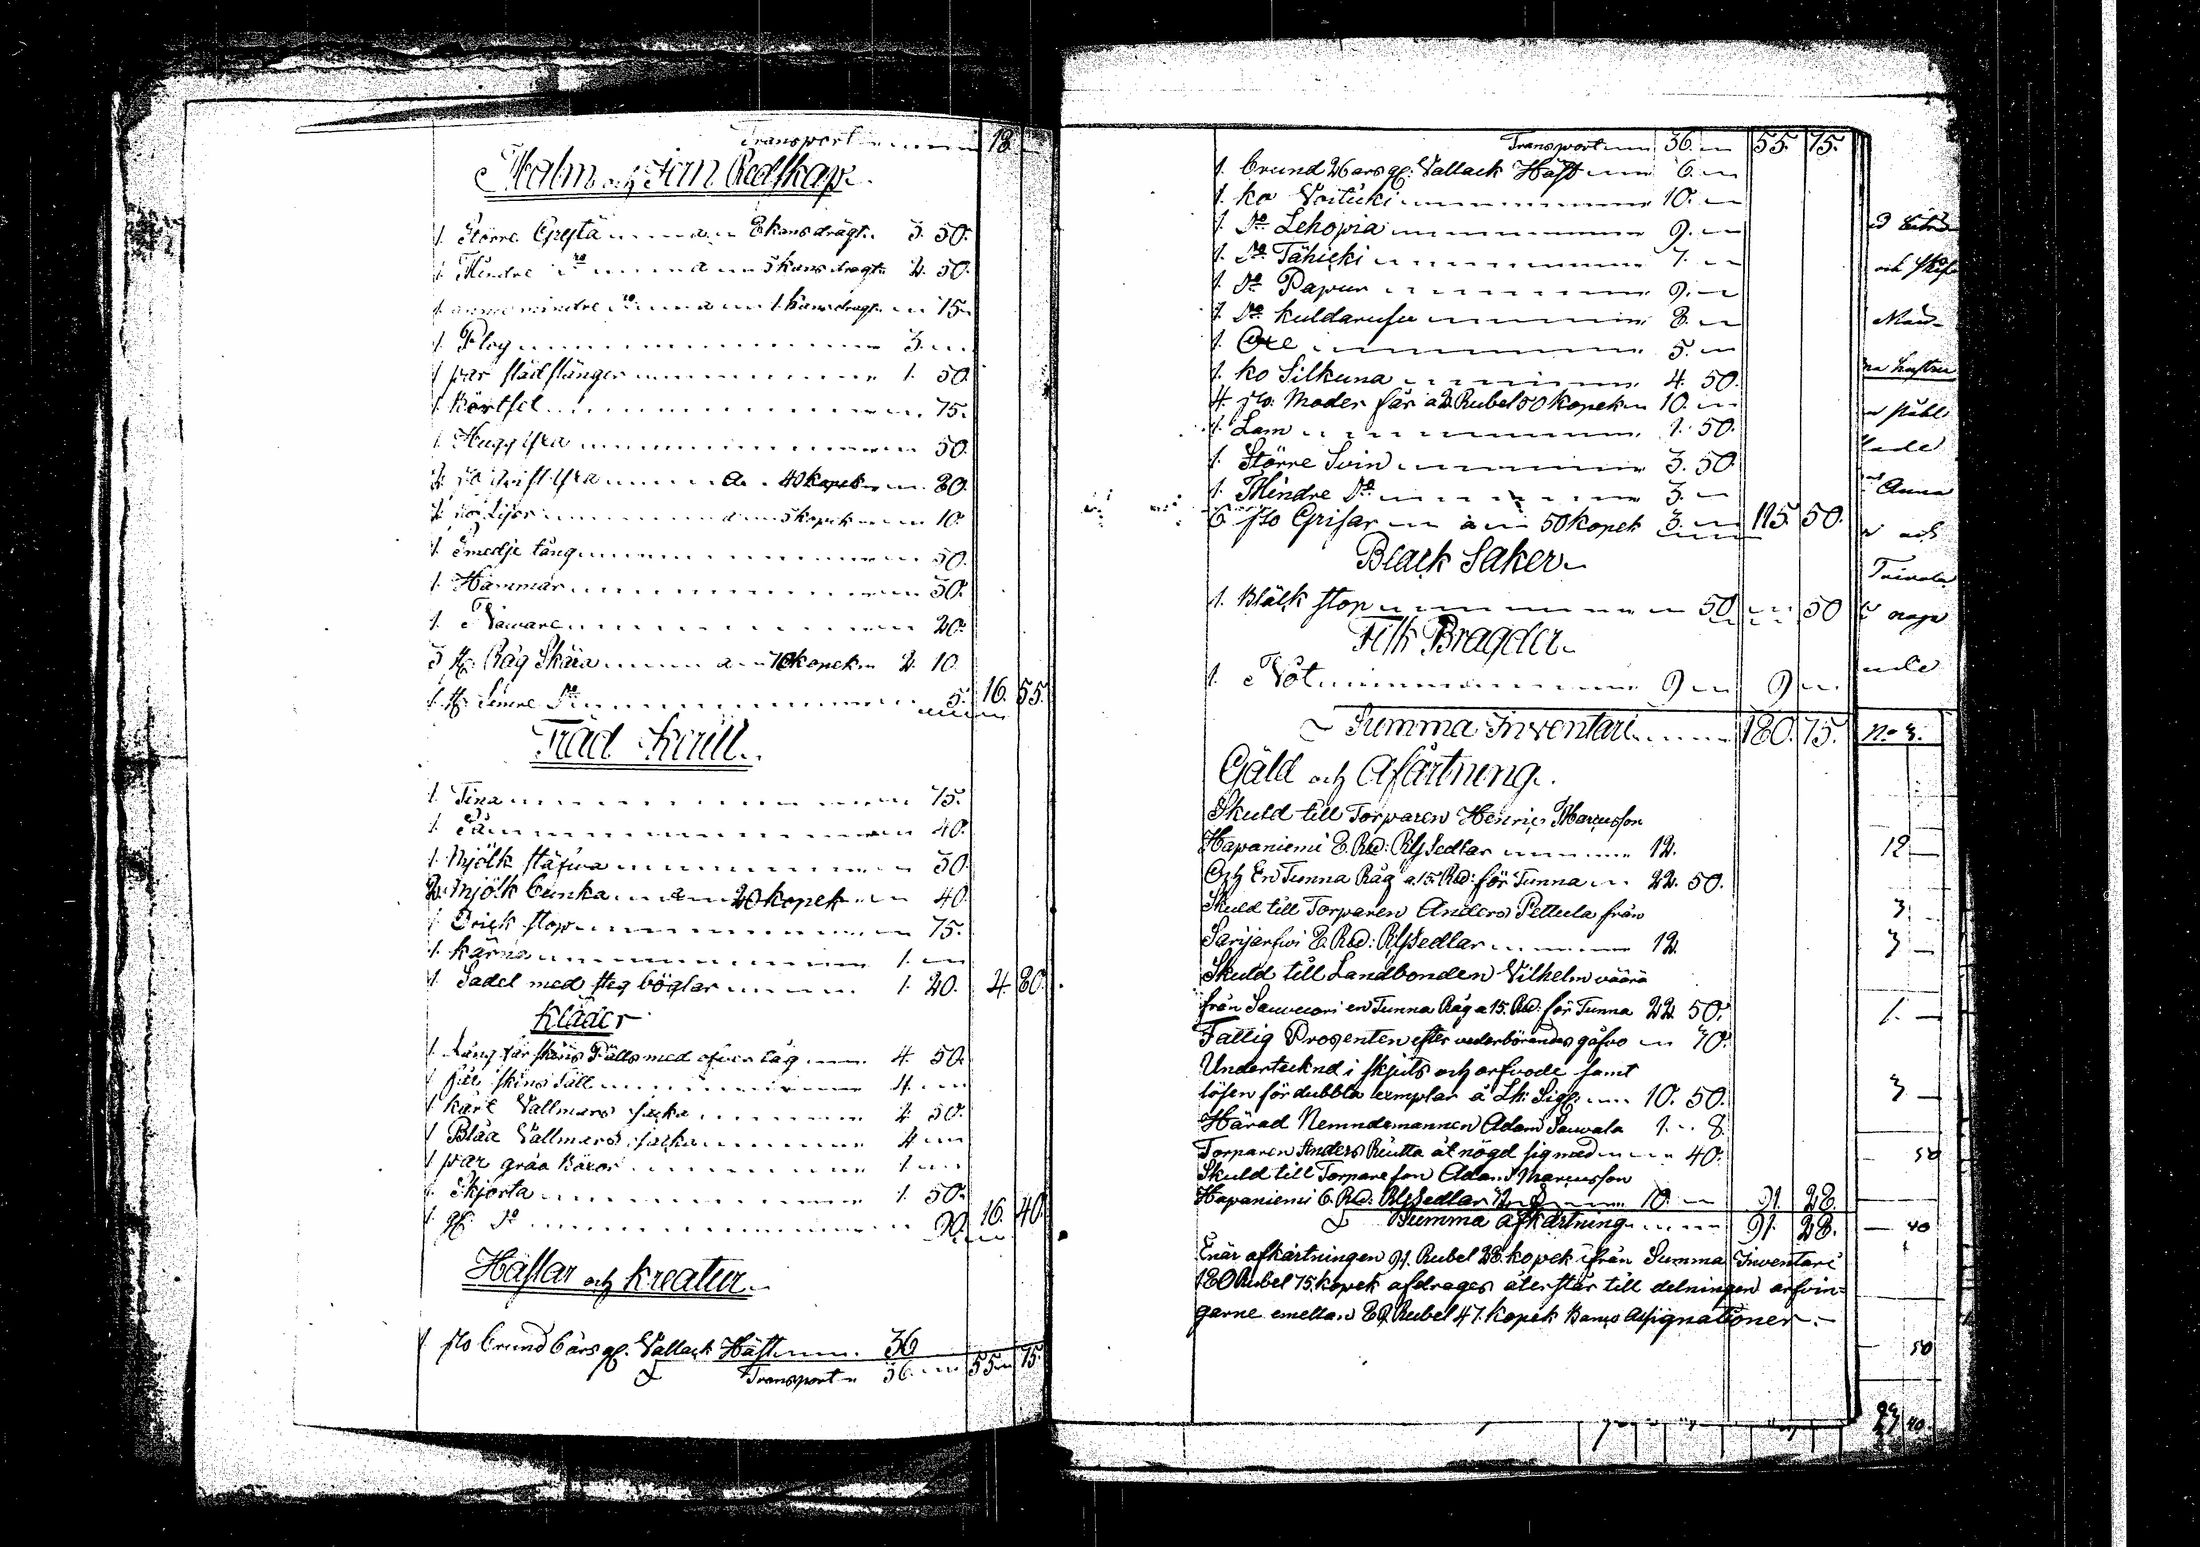 Transport 18.
Malm och Järn Redskap.
1. Större Gryta a 8 kans drägt. 3. 50.
1. Mindre do a 5 kans dragt. 2. 50.
1. ännu mindre do a 1. kans dragt. 75.
1. Plog 3.
1 par slädstänger 1. 50.
1. Körtsel 75.
1. Hugg yxa 50.
2. st. yxa a 40 kopek 80.
2. Lijor a 5 kopek 10.
1. Smedje tång 50.
1. Hammar 50.
1. Naware 20.
3 st. Råg Skära a 70 kopek 2. 10.
1. st. Sämre do 5. 16. 55.
Träd Kärill.
1. Tina 75.
1. Så 40.
1. Mjölk stäfwa 50.
2. Mjölk bunka a 20 kopek 40.
1. Drick stop 75.
1. Kärna 1.
1. Sadel med steg böglar 1. 20. 4. 80.
Kläder
1. Lång får skins Pälts med öfver tåg 4. 50.
1 får skins fäll 4.
1 Karl Vallmars jacka 2. 50.
1 Blåa Vallmars jacka 4.
1 par gråa Böxor 1.
1. Skjorta 1. 50.
1. gl. do 90. 16. 40.
Hästar och Kreatur.
1 st. brund 6 års gl. Vallack Häst 36
Transport 36. 55. 75.
Transport 36. 55. 75.
1. brund 26 års gl. Vallack Häst 6.
1. ko Voiticki 10.
1. do Lehopia 9.
1. do Tähicki 7.
1. do Papuu 9.
1. do Kuldarusu 8.
1. Oxe 5.
1. ko Silkuna 4. 50.
4. st. Moder får a 2. Rubel 50 kopek 10.
1. Lam 1. 50.
1. Större Svin 3. 50.
1. Mindre do 3.
6 st. Grisar a 50 kopek 3. 115. 50.
Bläck Saker
1. Bläck stop 50. 50
Fisk Bragder.
1. Nöt 9 9
Summa Inventari 180. 75.
Gäld och Afkårtning.
Skuld till Torparen Henric Marcusson
Hapaniemi E. Rbd: Rgs Sedlar 12.
Och En Tunna Råg a 15. Rbd: för Tunna 22. 50.
Skuld till Torparen Anders Pettula från
Sarijarfwi E. Rbd: Rgs Sedlar 12.
Skuld till Landbonden Vilhelm väärä
från Sauwuori en Tunna Råg a 15. Rbd: för Tunna 22. 50.
Fattig Prosenten efter vederbörandes gåfvo 70.
Undertecknd i skjuts och arfvode samt
lösen för dubbla exmplar å Lk: Sigg: 10. 50.
Härad Nemndemannen Adam Sauvala 1. 8.
Torparen Anders Reutta åt nögd sig med 40.
Skuld till Torpare son Adam Marcusson
Hapaniemi E. Rbd: Rgs Sedlar 10. 91. 28.
Summa afkårtning 91. 28.
Enär afkårtningen 91. Rubel 28. kopek ifrån Summa Inventari
180 Rubel 75. kopek afdrages återstår till delningen arfvin-
garne emellan 89. Rubel 47. kopek Banco Assignationer.
och
Anna
och
No 3.
12
3
3
1.
3
50
40
50
40.